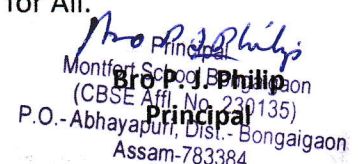 for All.
Bro P. J. Philip
Principal
Montfort School Bongaigaon
Bro P. J. Philip
(CBSE Affl. No. 230135)
Principal
P.O.- Abhayapuri, Dist.- Bongaigaon
Assam-783384